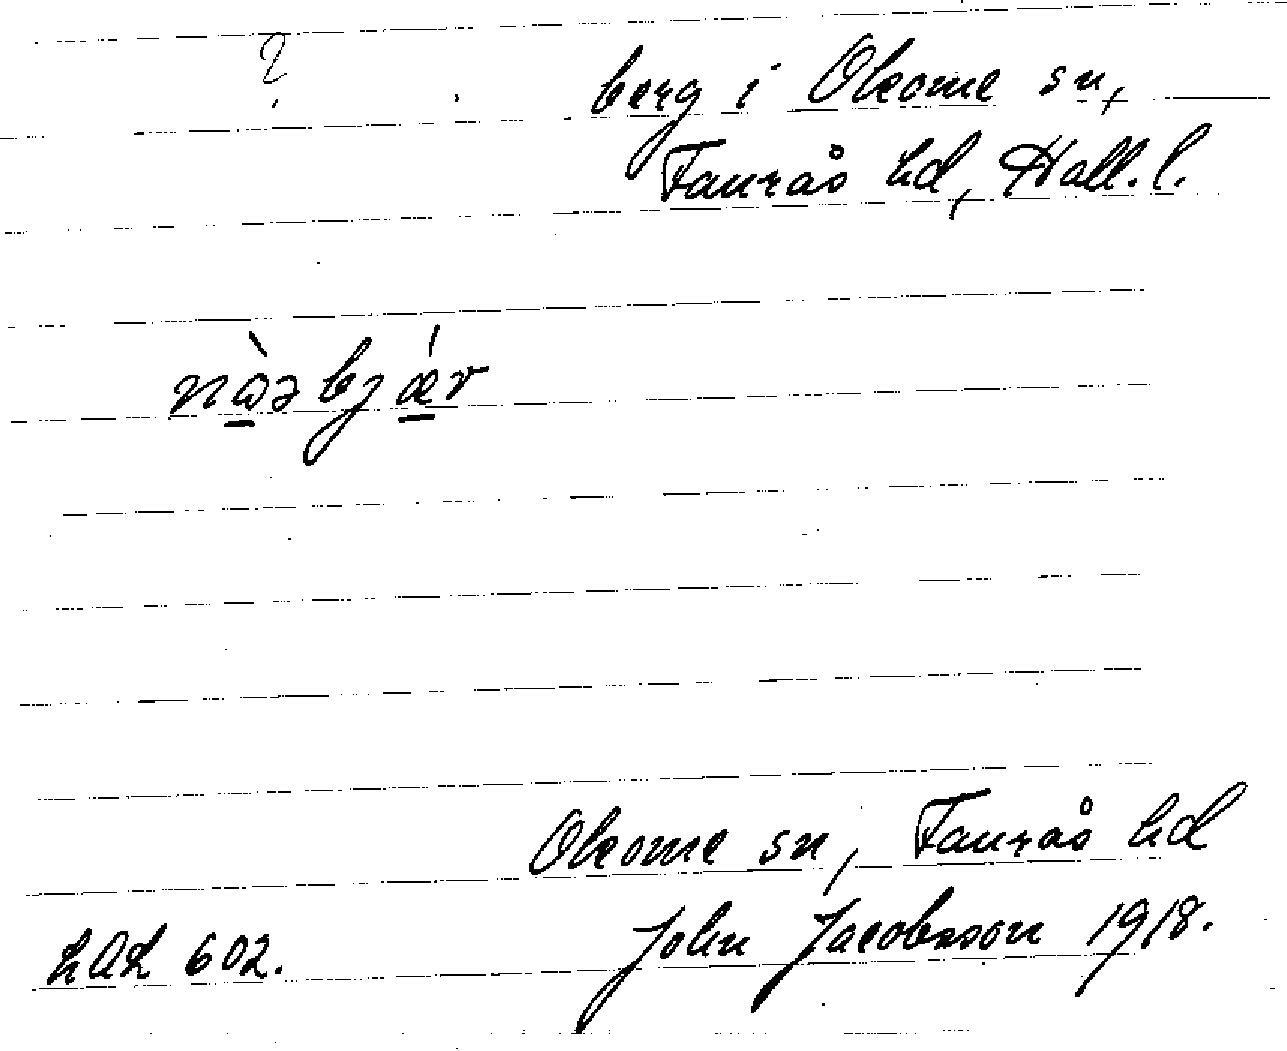 ?
berg i Okome sn,
Faurås hd, Hall. l.
Okome sn, Faurås hd
602. John Jacobsson 1918.